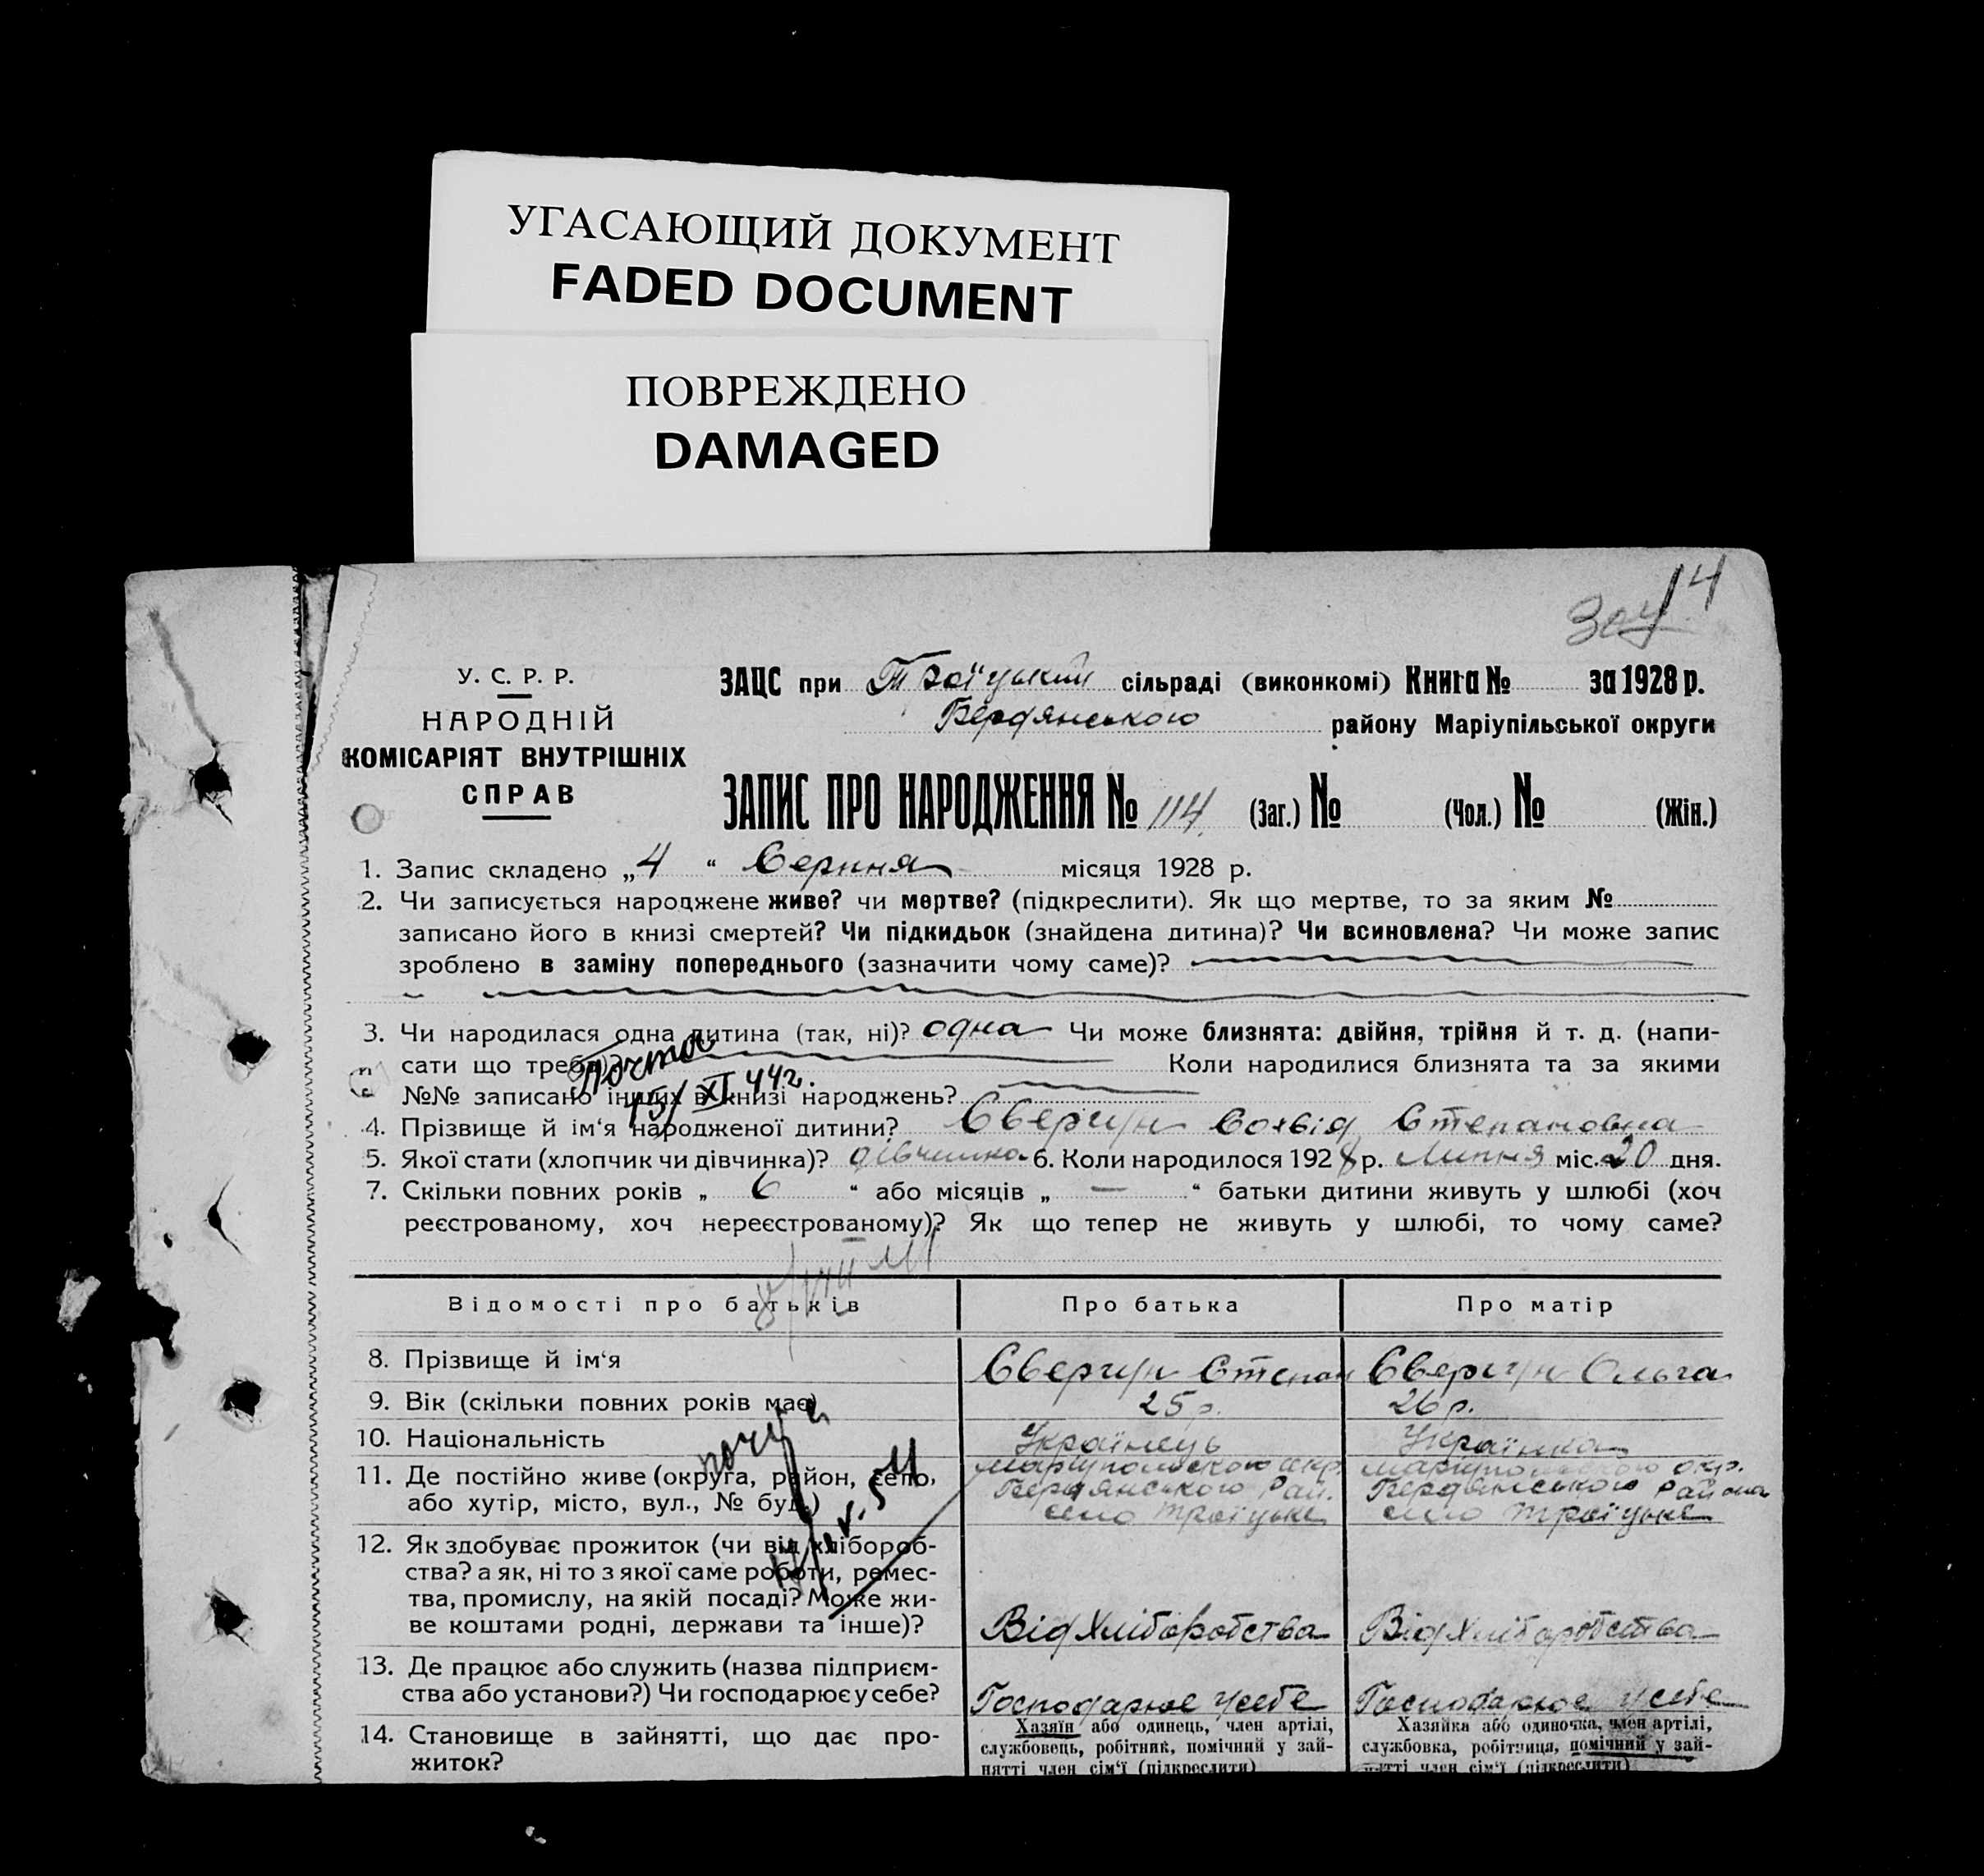 УГАСАЮЩИЙ ДОКУМЕНТ
FADED DOCUMENT
ПОВРЕЖДЕНО
DAMAGED
14
У. С. Р. Р.
НАРОДНІЙ
КОМІСАРІЯТ ВНУТРІШНІХ
СПРАВ
ЗАЦС при Троїцькій сільраді (виконкомі) Книга № за 1928 р.
Бердянського району Маріупільської округи
ЗАПИС ПРО НАРОДЖЕННЯ № 114. (Заг.) № (Чол.) № (Жін.)
1. Запис складено „4“ Серпня місяця 1928 р.
2. Чи записується народжене живе? чи мертве? (підкреслити). Як що мертве, то за яким №
записано його в книзі смертей? Чи підкидьок (знайдена дитина)? Чи всиновлена? Чи може запис
зроблено в заміну попереднього (зазначити чому саме)?
3. Чи народилася одна дитина (так, ні)? одна Чи може близнята: двійня, трійня й т. д. (напи-
сати що треба)? Коли народилися близнята та за якими
№№ записано інших в книзі народжень?
Почта
15/XI 44г.
4. Прізвище й ім‘я народженої дитини? Свергун Степановна
5. Якої стати (хлопчик чи дівчинка)? дівчинка 6. Коли народилося 1928 р. Липня міс. 20 дня.
7. Скільки повних років „ 6 “ або місяців „ — “ батьки дитини живуть у шлюбі (хоч
реєстрованому, хоч нереєстрованому)? Як що тепер не живуть у шлюбі, то чому саме?
Відомості про батьків Про батька Про матір
8. Прізвище й ім‘я Свергун Степан Свергун Ольга
9. Вік (скільки повних років має) 25 р. 26 р.
10. Національність Українець Українка
11. Де постійно живе (округа, район, село, Маріупольскою окр. Маріупольскою окр.
або хутір, місто, вул., № буд.) Бердянського Рай. Бердянського Района
село Троїцьке село Троїцьке
12. Як здобуває прожиток (чи від хлібороб-
ства? а як, ні то з якої саме роботи, ремес-
тва, промислу, на якій посаді? Може жи-
ве коштами родні, держави та інше)? Від Хліборобства Від Хліборобства
13. Де працює або служить (назва підприєм-
ства або установи?) Чи господарює у себе? Господарює у себе Господарює у себе
14. Становище в зайнятті, що дає про-
житок?
Хазяїн або одинець, член артілі,
службовець, робітник, помічний у зай-
нятті член сім‘ї (підкреслити)
Хазяйка або одиночка, член артілі,
службовка, робітниця, помічний у зай-
нятті член сім‘ї (підкреслити)